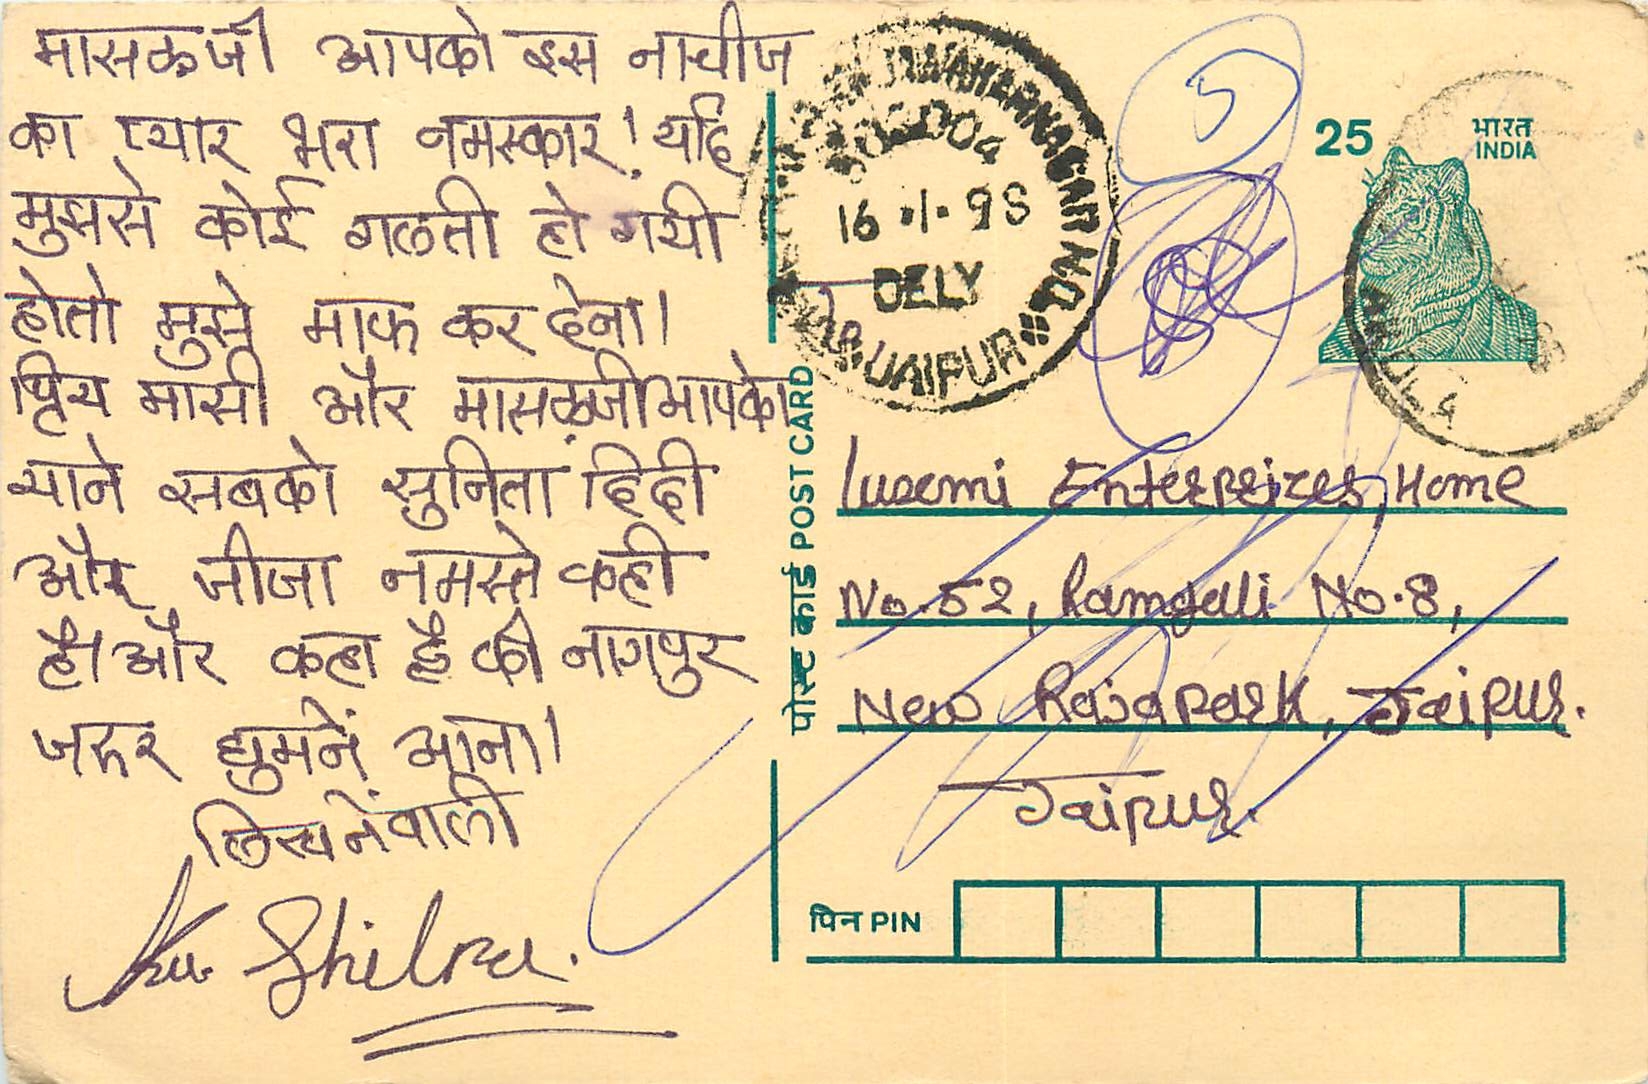 मासळजी आपको इस नाचीज
का प्यार भरा नमस्कार! यदि
मुझसे कोई गलती हो गयी
होतो मुझे माफ कर देना।
प्रिय मासी और मासळजी आपको
याने सबको सुनिता दिदी
और जीजा नमस्ते कही
है। और कहा है की नागपुर
जरूर घुमनें आना।
लिखनेंवाली
Ku. Shilpa.
JAWAHARNAGAR N.D.
302004
16.1.98
DELY
JAIPUR
5
25 भारत
INDIA
पोस्ट कार्ड POST CARD
Luxmi Enterprizes, Home
No. 52, Ramgali No. 8,
New Rajapark, Jaipur.
Jaipur.
पिन PIN